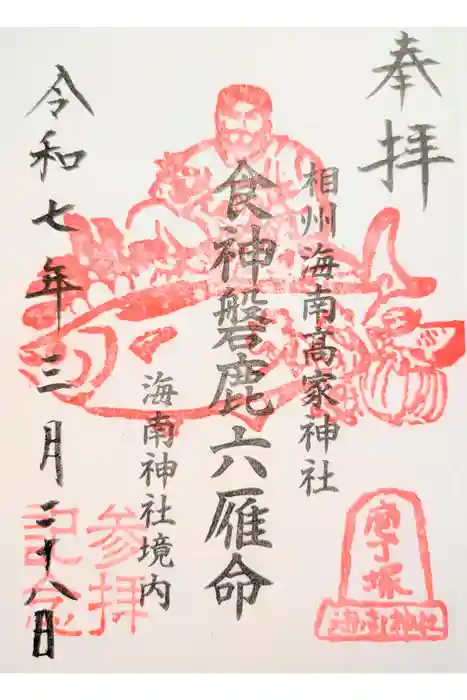 奉拝
相州海南高家神社
食神磐鹿六雁命
海南神社境内
令和七年三月二十八日
参拝
記念
庖丁塚
海南神社